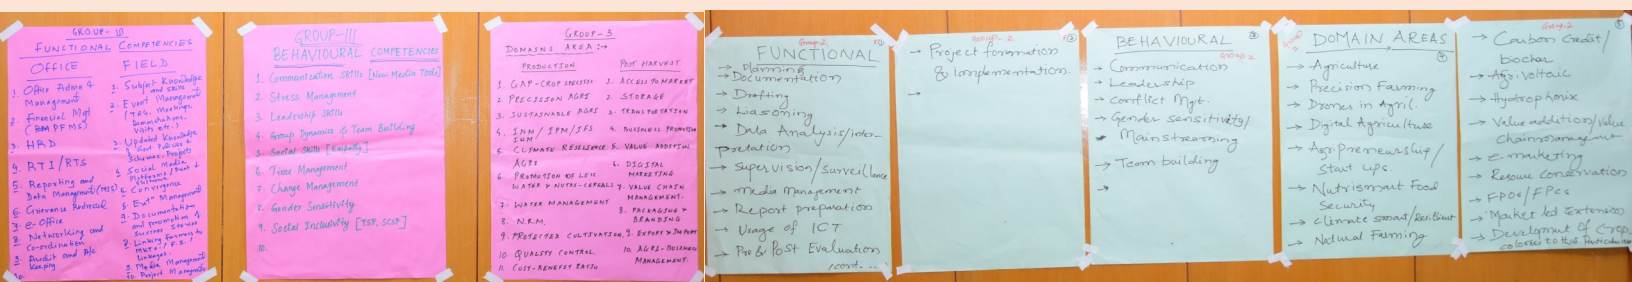 GROUP-III
FUNCTIONAL COMPETENCIES
OFFICE
1. Office Admn &
Management
2. Financial Mgt
(PFMS)
3. HRD
4. RTI/RTS
5. Reporting and
Data Management (MIS)
6. Grievance Redressal
7. e-Office
8. Networking and
Co-ordination
9. Audit and A/c
Keeping
10.
FIELD
1. Subject Knowledge
and skills
2. Event Management
(TRG, Meetings,
Demonstrations,
Visits etc.)
3. Updated Knowledge
Schemes, Projects
4. Social Media
5. Convergence
6. Event Management
7. Documentation
and promotion of
Success Stories
8. Linking Farmers to
Linkages.
9. Media Management
10. Project Management
GROUP-III
BEHAVIOURAL COMPETENCIES
1. Communication Skills [New Media Tools]
2. Stress Management
3. Leadership Skills
4. Group Dynamics & Team Building
5. Social Skills [Empathy]
6. Time Management
7. Change Management
8. Gender Sensitivity
9. Social Inclusivity [TSP, SCSP]
10.
GROUP-3
DOMAINS AREA :→
PRODUCTION
1. GAP-CROP SPECIFIC
2. PRECISION AGRI
3. SUSTAINABLE AGRI
4. INM/IPM/IFS
IWM
5. CLIMATE RESILIENCE
AGRI
6. PROMOTION OF LESS
WATER & NUTRI-CEREALS
7. WATER MANAGEMENT
8. N.R.M.
9. PROTECTED CULTIVATION
10. QUALITY CONTROL
11. COST-BENEFIT RATIO
POST HARVEST
1. ACCESS TO MARKET
2. STORAGE
3. TRANSPORTATION
4. BUSINESS PROMOTION
5. VALUE ADDITION
6. DIGITAL
MARKETING
7. VALUE CHAIN
MANAGEMENT.
8. PACKAGING &
BRANDING
9. EXPORT & IMPORT
10. AGRI-BUSINESS
MANAGEMENT.
Group-2 ①
FUNCTIONAL
→ Planning
→ Documentation
→ Drafting
→ Liasoning
→ Data Analysis/inter-
pretation
→ Supervision/Surveillance
→ media Management
→ Report preparation
→ Usage of ICT
→ Pre & Post Evaluation
/cont...
Group-2 ②
→ Project formation
& Implementation.
→
BEHAVIOURAL ③
Group 2
→ Communication
→ Leadership
→ Conflict Mgt.
→ Gender sensitivity/
Mainstreaming
→ Team building
→
Group 2
DOMAIN AREAS
④
→ Agriculture
→ Precision Farming
→ Drones in Agril.
→ Digital Agriculture
→ Agripreneurship/
Start ups.
→ Nutrismart Food
Security
→ climate smart/Resilient
→ Natural Farming
Group-2 ⑤
→ Carbon Credit/
biochar
→ Agri. Voltaic
→ Hydrophonix
→ Value addition/value
Chain management
→ e-marketing
→ Resource Conservation
→ FPOs/FPCs
→ Market led Extension
→ Develpment of Crop